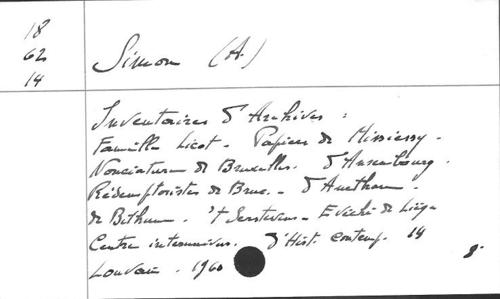 18
62
14
Simon (A.)
Inventaires d'Archives :
Famille Licot - Papiers de Missiessy -
Nonciature de Bruxelles. d'Ansembourg.
Rédemptoristes de Brux. - d'Anethan -
de Béthune. 't Serstevens - Evêché de Liège
Centre interuniver. d'Hist. contemp. 14
Louvain - 1960 8°